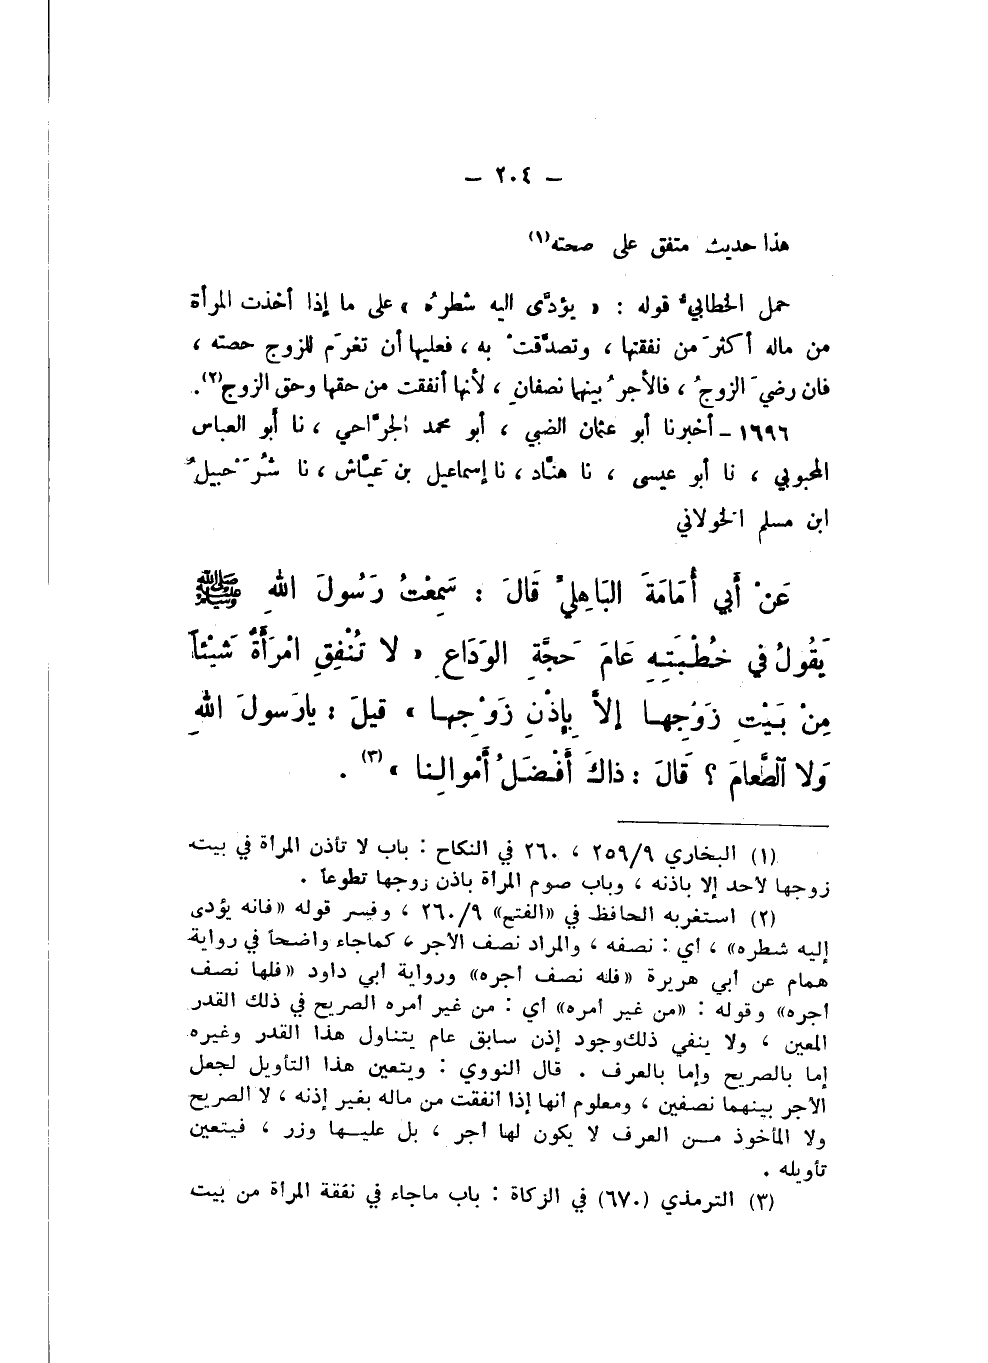 – ٢٠٤ –
هذا حديث متفق على صحته(١)
حمل الخطابيُّ قوله : « يؤدَّى اليه شطرُه » على ما إذا أخذت المرأة
من ماله أكثرَ من نفقتها ، وتصدَّقتْ به ، فعليها أن تغرَم للزوج حصته ،
فان رضيَ الزوجُ ، فالأجرُ بينهما نصفانِ ، لأنها أنفقت من حقها وحق الزوج(٢).
١٦٩٦ – أخبرنا أبو عثمان الضبي ، أبو محمد الجرَّاحي ، نا أبو العباس
المحبوبي ، نا أبو عيسى ، نا هنَّاد ، نا إسماعيل بن عَيَّاش ، نا شُرَحْبيلُ
ابن مسلم الخولاني
عَنْ أَبي أُمَامَةَ البَاهِليِّ قَالَ : سَمِعْتُ رَسُولَ اللهِ ﷺ
يَقُولُ في خُطْبَتِهِ عَامَ حَجَّةِ الوَدَاعِ « لا تُنْفِقِ امْرَأَةٌ شَيْئاً
مِنْ بَيْتِ زَوْجِهـا إلاَّ بِإذْنِ زَوْجِهـا » قيلَ : يارَسولَ اللهِ
وَلا الطَّعامَ ؟ قَالَ : ذاكَ أَفْضَلُ أَمْوالِنا »(٣) .
(١) البخاري ٢٥٩/٩ ، ٢٦٠ في النكاح : باب لا تأذن المرأة في بيت
زوجها لأحد إلا باذنه ، وباب صوم المرأة باذن زوجها تطوعاً .
(٢) استغربه الحافظ في «الفتح» ٢٦٠/٩ ، وفسر قوله «فانه يؤدى
إليه شطره» ، أي : نصفه ، والمراد نصف الأجر ، كماجاء واضحاً في رواية
همام عن أبي هريرة «فله نصف أجره» ورواية أبي داود «فلها نصف
أجره» وقوله : «من غير أمره» أي : من غير أمره الصريح في ذلك القدر
المعين ، ولا ينفي ذلك وجود إذن سابق عام يتناول هذا القدر وغيره
إما بالصريح وإما بالعرف . قال النووي : ويتعين هذا التأويل لجعل
الأجر بينهما نصفين ، ومعلوم أنها إذا أنفقت من ماله بغير إذنه ، لا الصريح
ولا المأخوذ مـن العرف لا يكون لها أجر ، بل عليـها وزر ، فيتعين
تأويله .
(٣) الترمذي (٦٧٠) في الزكاة : باب ماجاء في نفقة المرأة من بيت